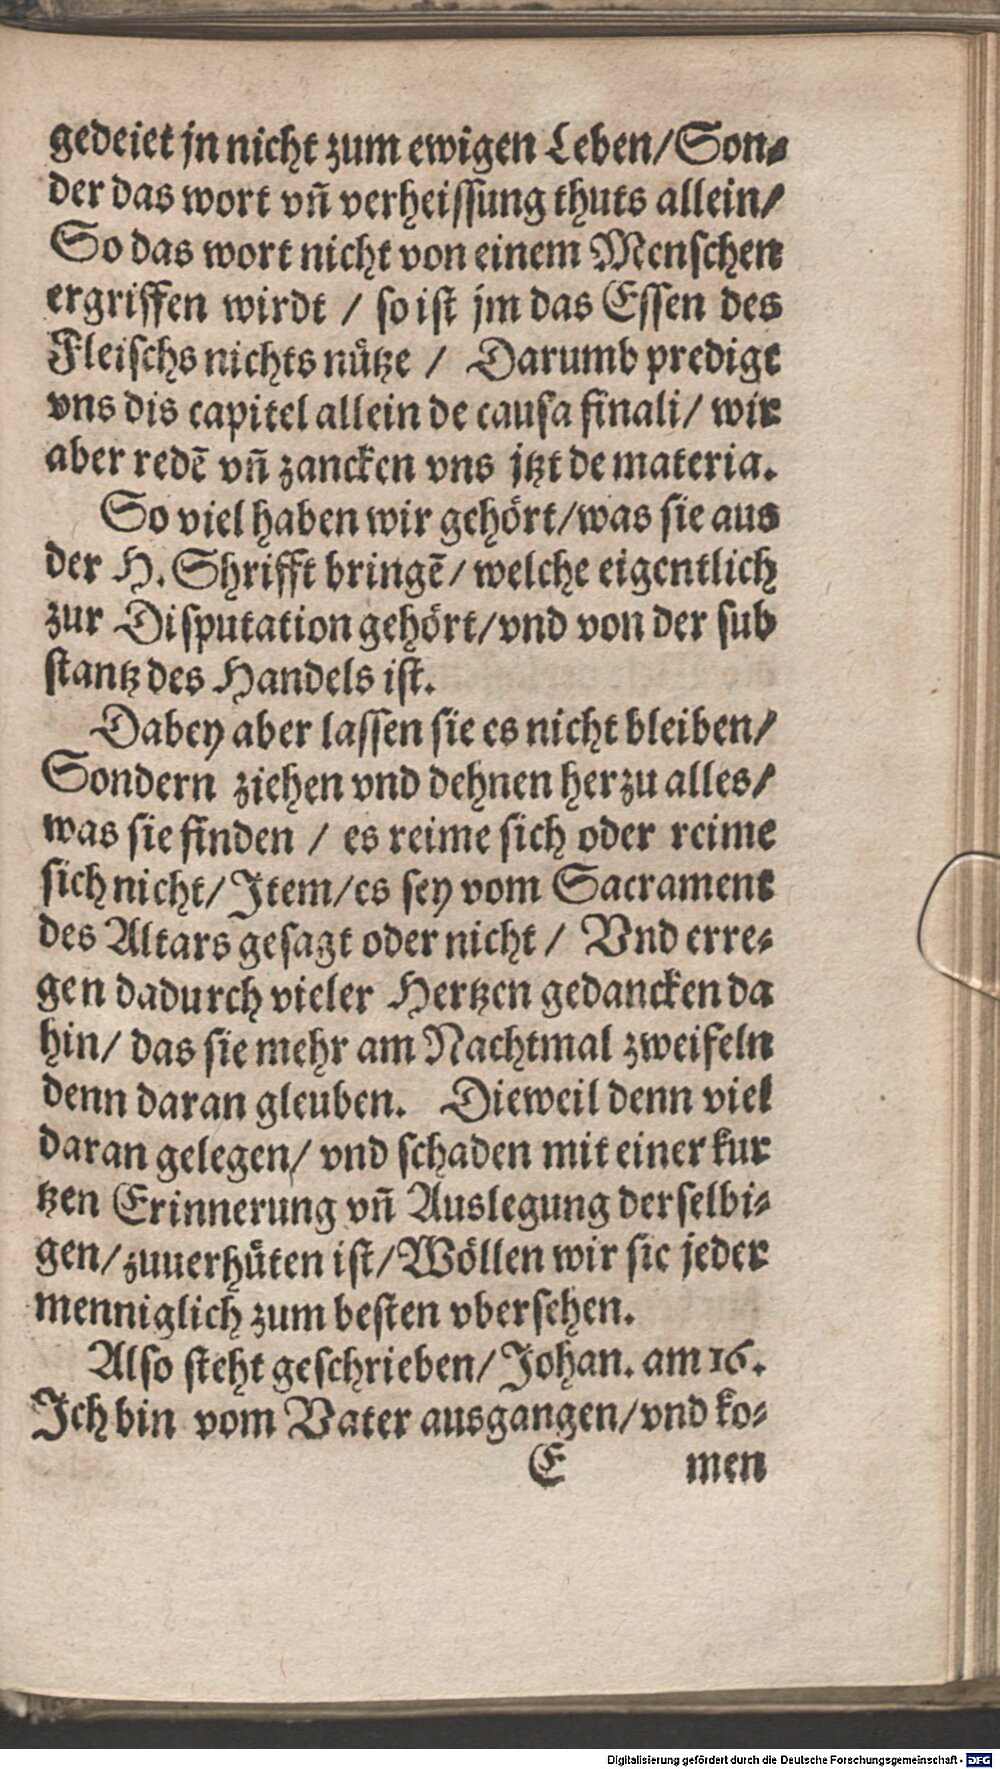 gedeiet jn nicht zum ewigen Leben/Son-
der das wort vñ verheissung thuts allein/
So das wort nicht von einem Menschen
ergriffen wirdt / so ist jm das Essen des
Fleischs nichts nütze / Darumb predigt
vns dis capitel allein de causa finali/ wir
aber redẽ vñ zancken vns jtzt de materia.
So viel haben wir gehört/was sie aus
der H. Shrifft bringẽ/ welche eigentlich
zur Disputation gehört/vnd von der sub
stantz des Handels ist.
Dabey aber lassen sie es nicht bleiben/
Sondern ziehen vnd dehnen herzu alles/
was sie finden / es reime sich oder reime
sich nicht/Item/es sey vom Sacrament
des Altars gesagt oder nicht / Vnd erre-
gen dadurch vieler Hertzen gedancken da
hin/ das sie mehr am Nachtmal zweifeln
denn daran gleuben. Dieweil denn viel
daran gelegen/ vnd schaden mit einer kur
tzen Erinnerung vñ Auslegung derselbi-
gen/zuuerhüten ist/Wöllen wir sie jeder
menniglich zum besten vbersehen.
Also steht geschrieben/Johan. am 16.
Ich bin vom Vater ausgangen/vnd ko-
E men
Digitalisierung gefördert durch die Deutsche Forschungsgemeinschaft - DFG